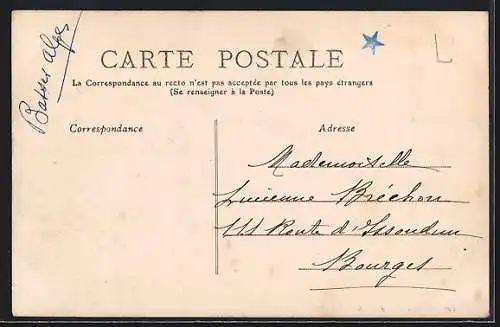 Basses Alpes
CARTE POSTALE
La Correspondance au recto n'est pas acceptée par tous les pays étrangers
(Se renseigner à la Poste)
Correspondance
Adresse
Mademoiselle
Lucienne Bréchon
111 Route d'Issoudun
Bourges